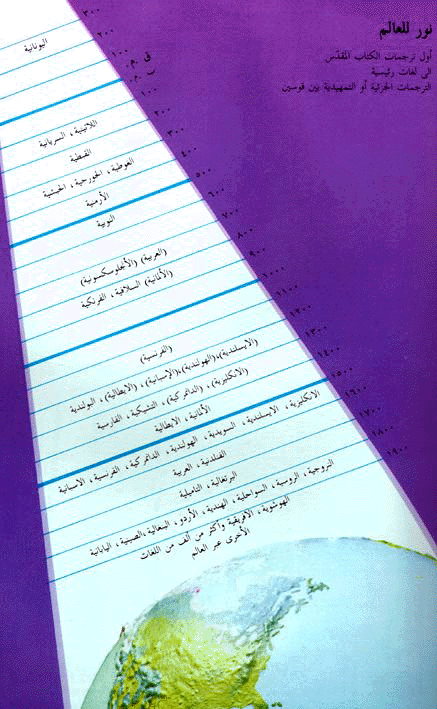 نور للعالم
أول ترجمات الكتاب المقدّس
الى لغات رئيسية
الترجمات الجزئية أو التمهيدية بين قوسين
٣٠٠
٢٠٠
اليونانية
١٠٠
ق . م .
ب . م .
١٠٠
اللاتينية ، السريانية
٢٠٠
القبطية
٣٠٠
الغوطية ، الجورجية ، الحبشية
٤٠٠
الأرمنية
٥٠٠
النوبية
٦٠٠
٧٠٠
(العربية) (الأنجلوسكسونية)
٨٠٠
(الألمانية) السلافية ، الفرنكية
٩٠٠
١٠٠٠
١١٠٠
(الفرنسية)
١٢٠٠
(الايسلندية)،(الهولندية)،(الإسبانية) ، (الايطالية) ، البولندية
١٣٠٠
(الانكليزية) ، (الدانمركية) ، التشيكية ، الفارسية
١٤٠٠
الألمانية ، الايطالية
١٥٠٠
الانكليزية ، الايسلندية ، السويدية ، الهولندية ، الدانمركية ، الفرنسية ، الاسبانية
١٦٠٠
الفنلندية ، العربية
١٧٠٠
البرتغالية ، التاميلية
١٨٠٠
النروجية ، الروسية ، السواحلية ، الهندية ، الأردو ، البنغالية ،الصينية ، اليابانية
١٩٠٠
الأفريقية وأكثر من ألف من اللغات
الأخرى عبر العالم